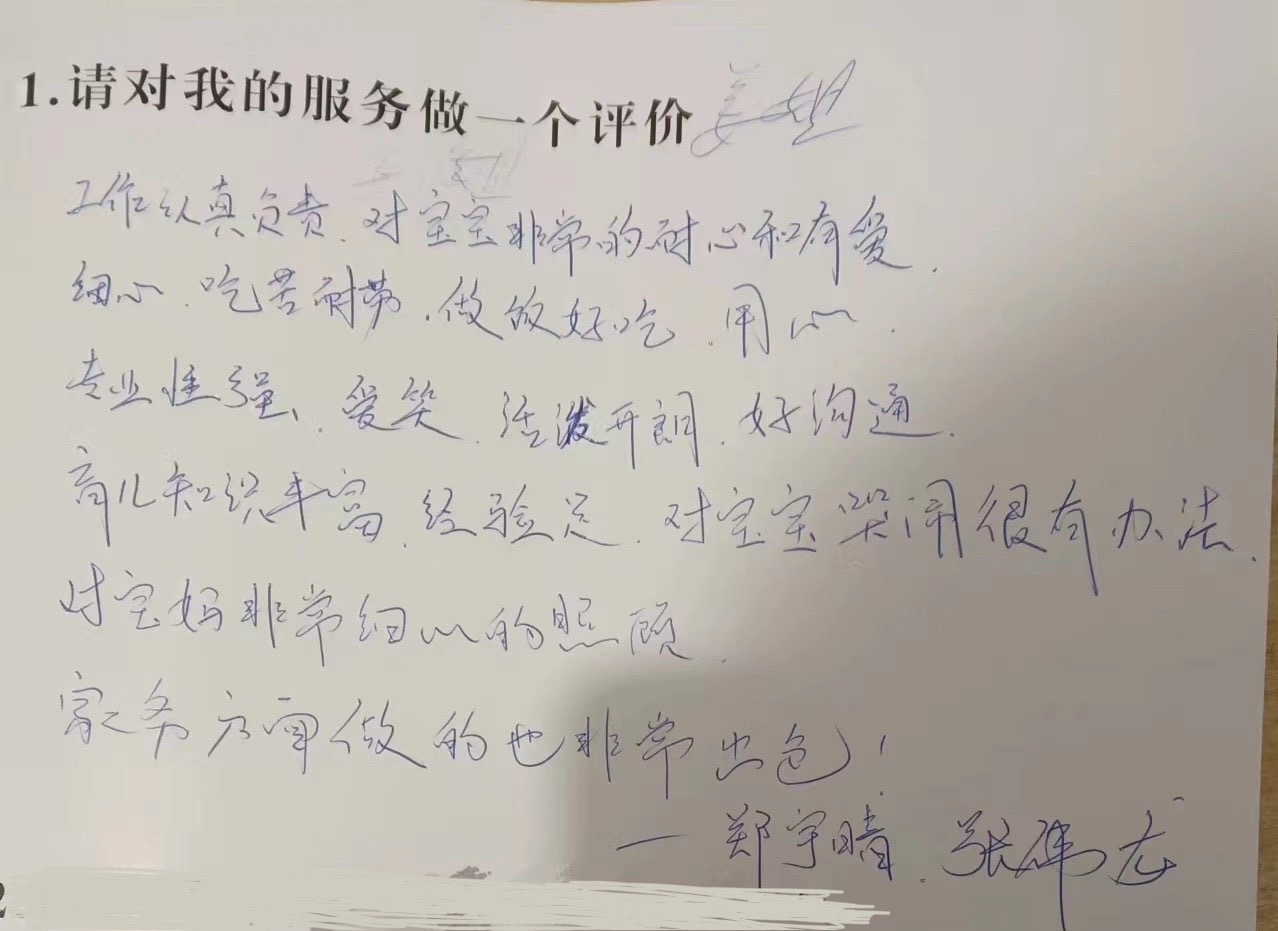 1.请对我的服务做一个评价 姜姐
工作认真负责、对宝宝非常的耐心和有爱、
细心、吃苦耐劳、做饭好吃、用心、
专业性强、爱笑、活泼开朗、好沟通、
育儿知识丰富、经验足、对宝宝哭闹很有办法、
对宝妈非常细心的照顾、
家务方面做的也非常出色！
— 郑宇晴、张伟龙
2